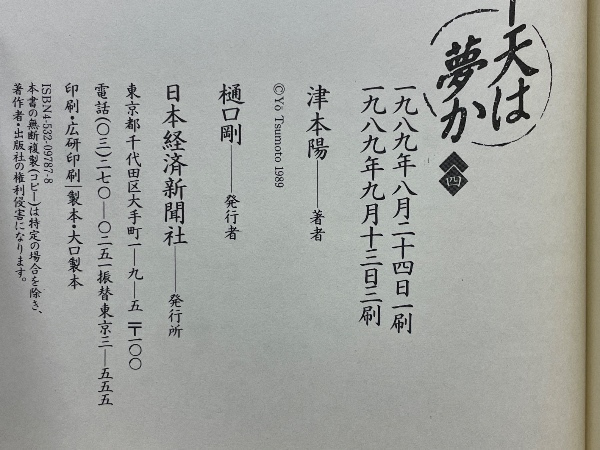 天は
夢か
四
一九八九年八月二十四日一刷
一九八九年九月十三日三刷
津本陽――著者
©Yō Tsumoto 1989
樋口剛――発行者
日本経済新聞社――発行所
東京都千代田区大手町一―九―五 〒一〇〇
電話(〇三)二七〇―〇二五一 振替東京三―五五五
印刷・広研印刷|製本・大口製本
ISBN4-532-09787-8
本書の無断複製(コピー)は特定の場合を除き、
著作者・出版社の権利侵害になります。